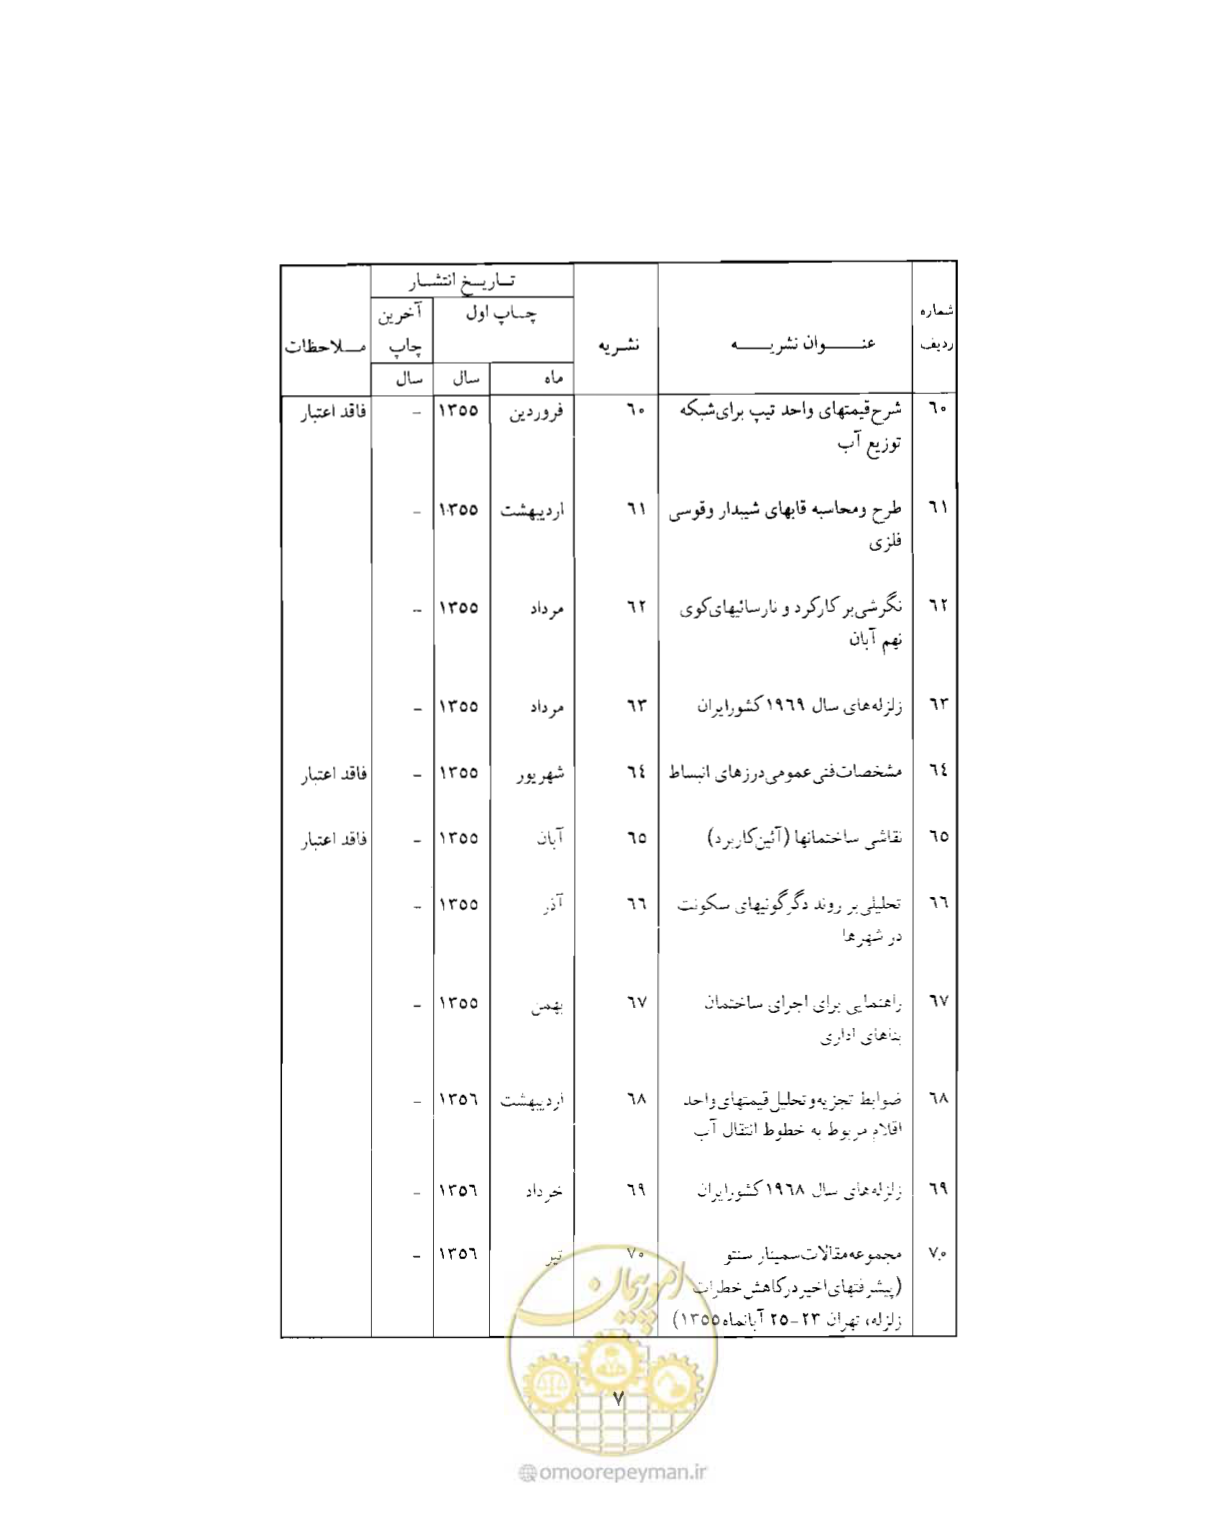 شماره ردیف عنــــوان نشریــــه نشـریه تـاریــخ انتشـار مــلاحظات
چـاپ اول آخرین چاپ
ماه سال سال
٦٠ شرح قیمتهای واحد تیپ برای شبکه ٦٠ فروردین ١٣٥٥ - فاقد اعتبار
توزیع آب
٦١ طرح ومحاسبه قابهای شیبدار وقوسی ٦١ اردیبهشت ١٣٥٥ -
فلزی
٦٢ نگرشی بر کارکرد و نارسائیهای کوی ٦٢ مرداد ١٣٥٥ -
نهم آبان
٦٣ زلزله‌های سال ١٩٦٩ کشورایران ٦٣ مرداد ١٣٥٥ -
٦٤ مشخصات فنی عمومی درزهای انبساط ٦٤ شهریور ١٣٥٥ - فاقد اعتبار
٦٥ نقاشی ساختمانها (آئین کاربرد) ٦٥ آبان ١٣٥٥ - فاقد اعتبار
٦٦ تحلیلی بر روند دگرگونیهای سکونت ٦٦ آذر ١٣٥٥ -
در شهرها
٦٧ راهنمایی برای اجرای ساختمان ٦٧ بهمن ١٣٥٥ -
بناهای اداری
٦٨ ضوابط تجزیه و تحلیل قیمتهای واحد ٦٨ اردیبهشت ١٣٥٦ -
اقلام مربوط به خطوط انتقال آب
٦٩ زلزله‌های سال ١٩٦٨ کشورایران ٦٩ خرداد ١٣٥٦ -
٧٠ مجموعه مقالات سمینار سنتو ٧٠ تیر ١٣٥٦ -
(پیشرفتهای اخیر در کاهش خطرات
زلزله، تهران ٢٣-٢٥ آبانماه ١٣٥٥)
امور پیمان
٧
@omoorepeyman.ir